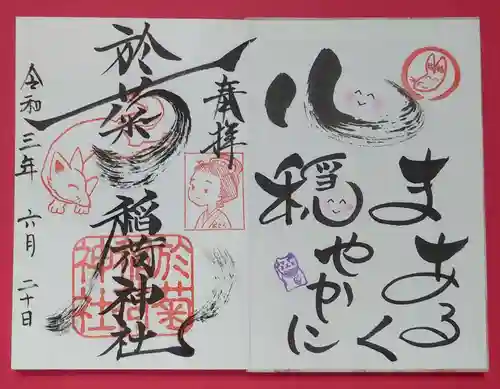 心
まあるく
穏やかに
奉拝
於菊稲荷神社
於菊
稲荷
神社
令和三年 六月 二十日